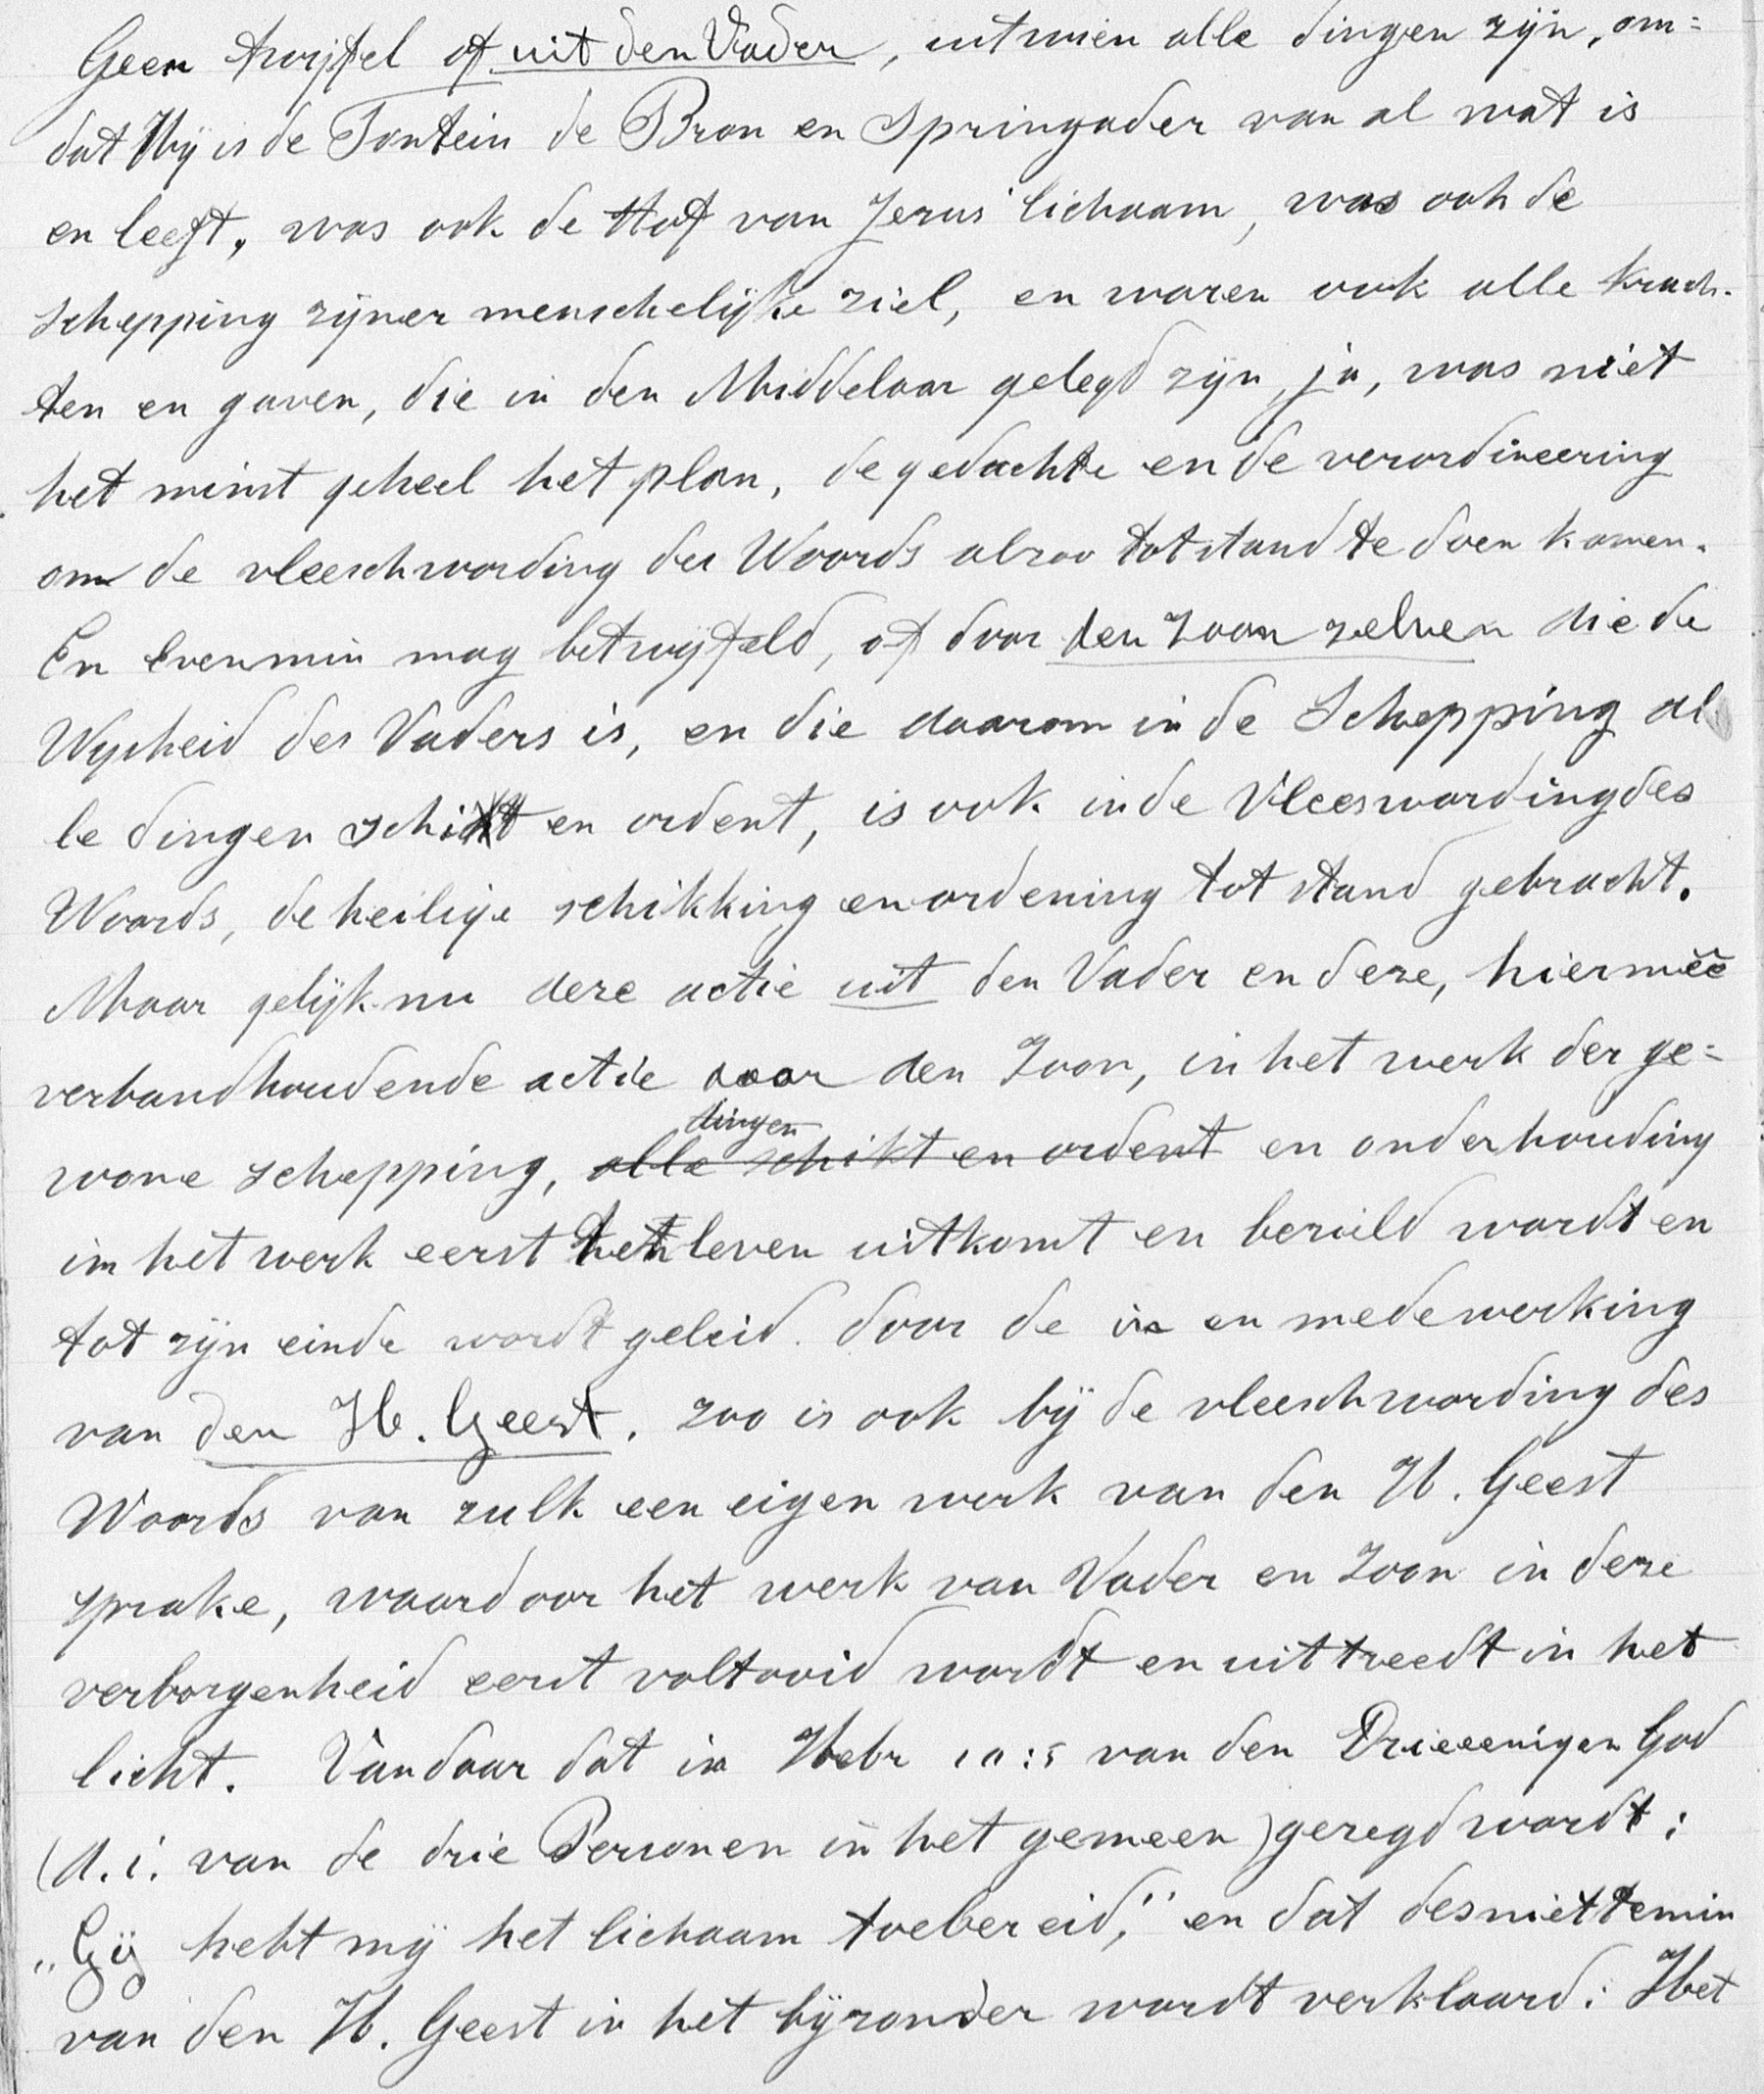 Geen twijfel of uit den Vader, uit wien alle dingen zijn, om=
dat Hij is de Fontein de Bron en Springader van al wat is
en leeft, was ook de stof van Jezus' lichaam, was ook de
schepping zijner menschelijke ziel, en waren ook alle krach-
ten en gaven, die in den Middelaar gelegd zijn, ja, was niet
het minst geheel het plan, de gedachte en de verordineering
om de vleeschwording des Woords alzoo tot stand te doen komen.
En evenmin mag betwijfeld, of door den Zoon zelven die de
Wijsheid des Vaders is, en die daarom in de Schepping al
le dingen schikt en ordent, is ook in de Vleeswording des
Woords, de heilige schikking en ordening tot stand gebracht.
Maar gelijk nu deze actie uit den Vader en deze, hiermeê
verbandhoudende actie door den Zoon, in het werk der ge=
wone schepping, alle dingen schikt en ordent en onderhouding
in het werk eerst het leven uitkomt en bezield wordt en
tot zijn einde wordt geleid door de in en medewerking
van den H. Geest, zoo is ook bij de vleeschwording des
Woords van zulk een eigen werk van den H. Geest
sprake, waardoor het werk van Vader en Zoon in deze
verborgenheid eerst voltooid wordt en uittreedt in het
licht. Vandaar dat in Hebr 10:5 van den Drieeenigen God
(d.i. van de drie Personen in het gemeen) gezegd wordt:
„Gij hebt mij het lichaam toebereid," en dat desniettemin
van den H. Geest in het bijzonder wordt verklaard: Het